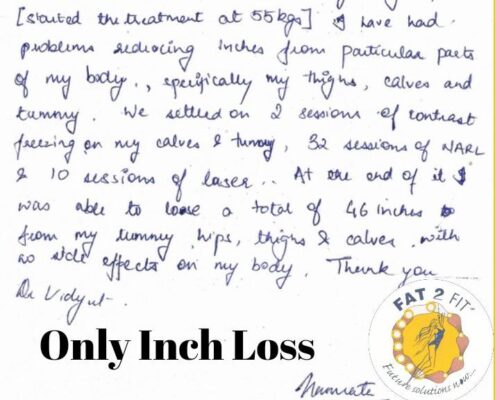 [started the treatment at 55kgs] I have had
problems reducing inches from particular parts
of my body., specifically my thighs, calves and
tummy. We settled on 2 sessions of contrast
freezing on my calves & tummy, 32 sessions of NARL
& 10 sessions of laser.. At the end of it I
was able to loose a total of 46 inches
from my tummy, hips, thighs & calves, with
no side effects on my body. Thank you
Dr Vidyut.
Only Inch Loss
FAT 2 FIT
Future solutions now...
Namrata